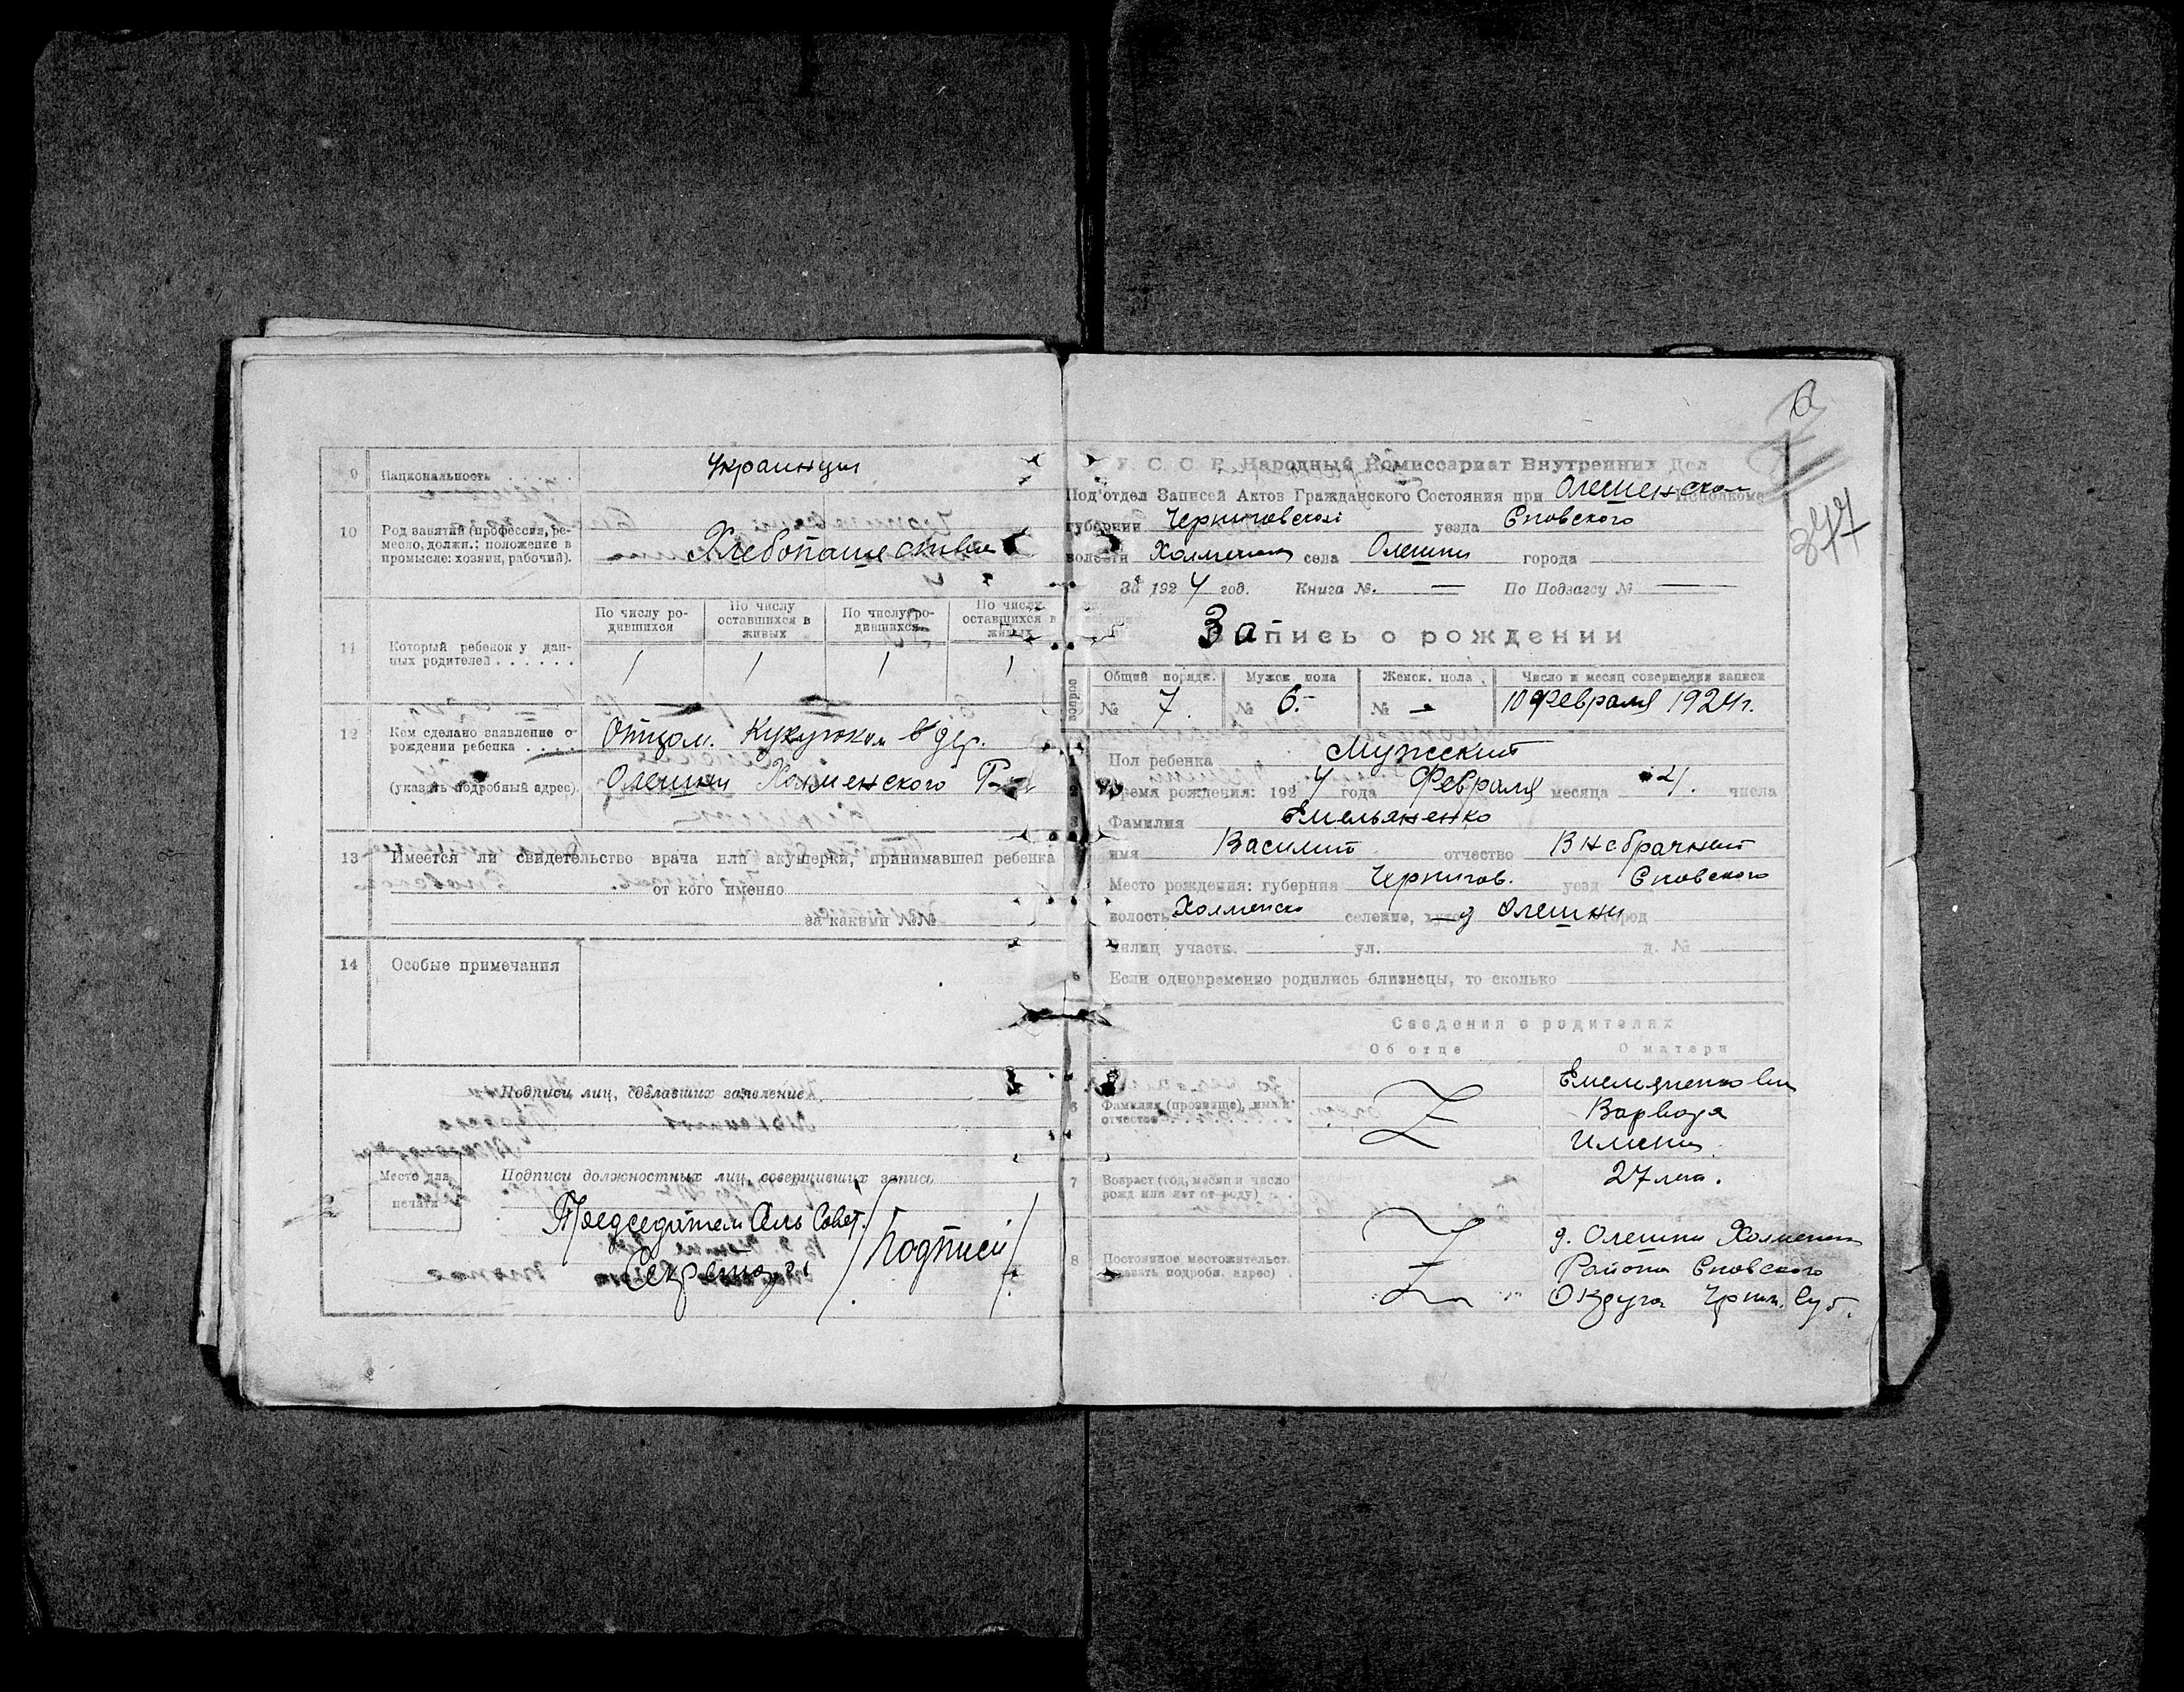 9 Национальность Украинцы
10 Род занятий (профессия, ре-
месло, должн.; положение в
промысле: хозяин, рабочий). Хлебопашество
По числу ро-
дившихся По числу
оставшихся в
живых По числу ро-
дившихся По числу
оставшихся в
живых
11 Который ребенок у дан-
ных родителей . . . . . . 1 1 1 1
12 Кем сделано заявление о
рождении ребенка . . . . Отцом. в дер.
(указать подробный адрес). Олешни Холменского
13 Имеется ли свидетельство врача или акушерки, принимавшей ребенка
от кого именно
за какими №№
14 Особые примечания
Подписи лиц, сделавших заявление
Место для
печати
Подписи должностных лиц, совершивших запись
Председатель Сель Совет.
Секретарь /подписи/
377
У. С. С. Р. Народный Комиссариат Внутренних Дел
Под'отдел Записей Актов Гражданского Состояния при Олешенском Исполкоме
губернии Черниговской уезда Сновского
волости села Олешни города
За 1924 год. Книга №. — По Подзагсу № —
Запись о рождении
Общий порядк. Мужск. пола Женск. пола Число и месяц совершения записи
№ 7. № 6.- № - 10 февраля 1924 г.
вопрос
1 Пол ребенка Мужский
2 Время рождения: 1924 года Февраля месяца 4. числа
3 Фамилия Емельяненко
имя Василий отчество Внебрачный
4 Место рождения: губерния Чернигов. уезд Сновского
волость Холменско селение, д Олешни город
милиц участк. ул. д. №
5 Если одновременно родились близнецы, то сколько
Сведения о родителях
Об отце О матери
6 Фамилия (прозвище), имя и
отчество
Варвара
7 Возраст (год, месяц и число
рожд или лет от роду) . . 27 лет.
8 Постоянное местожительст.
(указать подробн. адрес) . д. Олешни Холменск
Района Сновского
Округа Черниг. Губ.